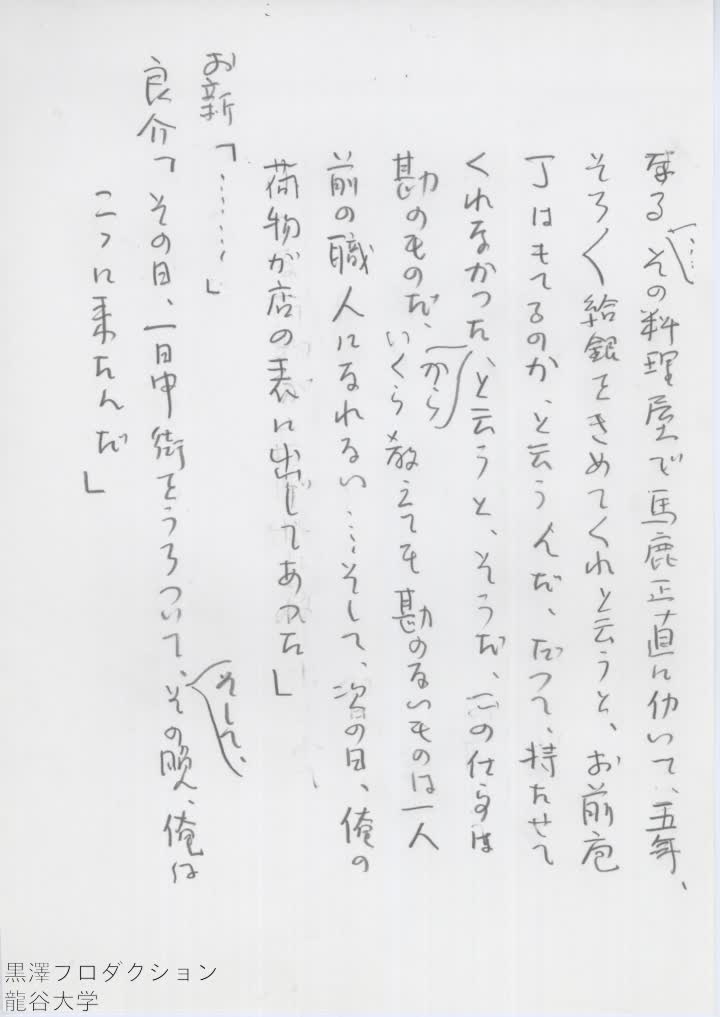 なる……その料理屋で馬鹿正直に仂いて、五年、
そろ〱給銀をきめてくれと云うと、お前庖
丁はもてるのか、と云うんだ、だって、持たせて
くれなかった、と云うと、そうだ、この仕事は
勘のものだ、から
いくら教えても勘のないものは一人
前の職人になれない…そして、次の日、俺の
荷物が店の表に出してあった」
お新「……」
良介「その日、一日中街をうろついて、そして、その晩、俺は
こゝに来たんだ」
黒澤プロダクション
龍谷大学